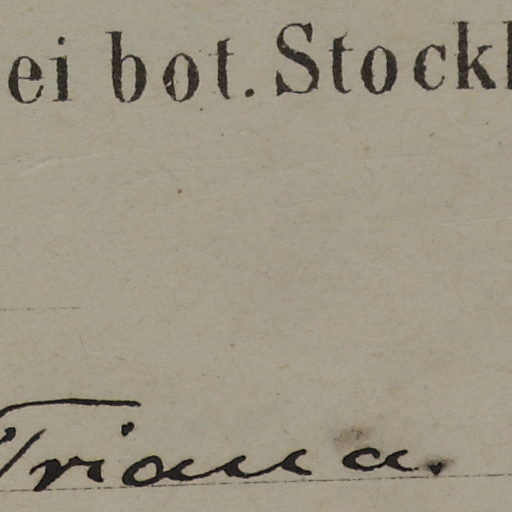 ei bot. Stockh
Triana.